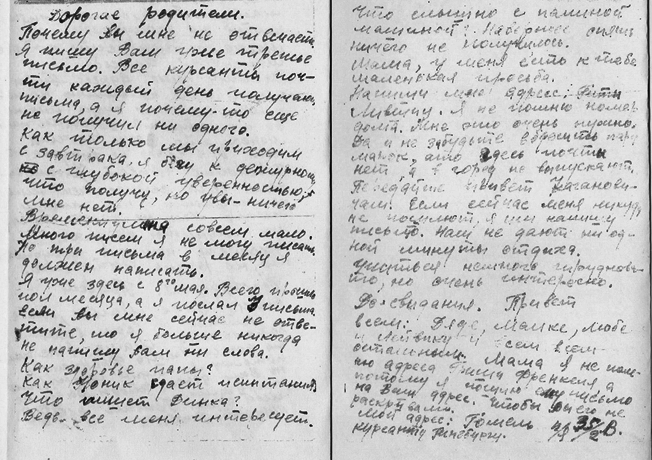 Дорогие родители.
Почему Вы мне не отвечаете
Я пишу Вам уже третье
письмо. Все курсанты поч-
ти каждый день получают
письма, а я почему-то еще
не получил ни одного.
Как только мы приходим
с завтрака, я бегу к дежурному
с глубокой уверенностью,
что получу, но увы-ничего
мне нет.
Времени у меня совсем мало.
Много писем я не могу писать
Но три письма в месяц я
должен написать.
Я уже здесь с 8го мая. Всего прошло
пол месяца, а я послал 3 письма.
Если вы мне сейчас не отве-
тите, то я больше никогда
не напишу вам ни слова.
Как здоровье папы?
Как Моник сдает испытания
Что пишет Финка?
Ведь всё меня интересует.
Что слышно с папиной
машиной? Наверное опять
ничего не получилось.
Мама, у меня есть к тебе
маленькая просьба.
Напиши мне адрес: Фиты
Я не помню номер
дома. Мне это очень нужно.
Да и не забудьте вложить пару
марок, а то здесь почты
нет, а в город не выпускают.
Передайте привет Каганови-
чам. Если сейчас меня никуда
не пошлют, я им напишу
письмо. Нам не дают ни од-
ной минуты отдыха.
Учиться немного труднова-
то, но очень интересно.
До-свидания. Привет
всем. Деде, Маике, Любе
и всем всем
остальным. Мама я не пом-
ню адреса Гриши Френкеля а
потому я пошлю ему письмо
на Ваш адрес. Чтобы Вы его не
раскрывали.
Мой адрес: Гомель п/я 35/2 В.
курсанту Гинзбургу.